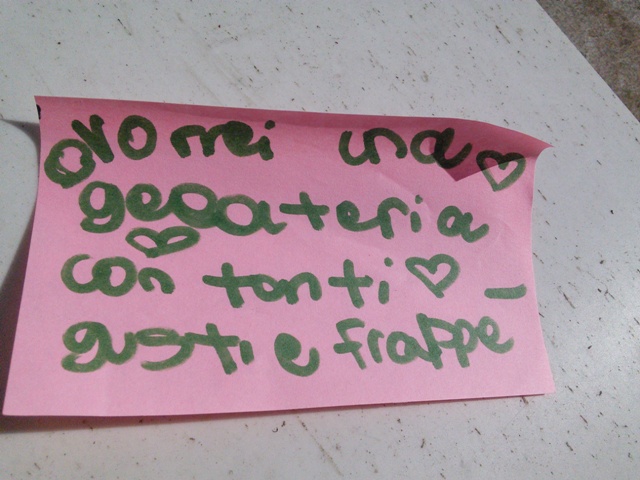 vorrei una
gelateria
con tanti
gusti e frappe